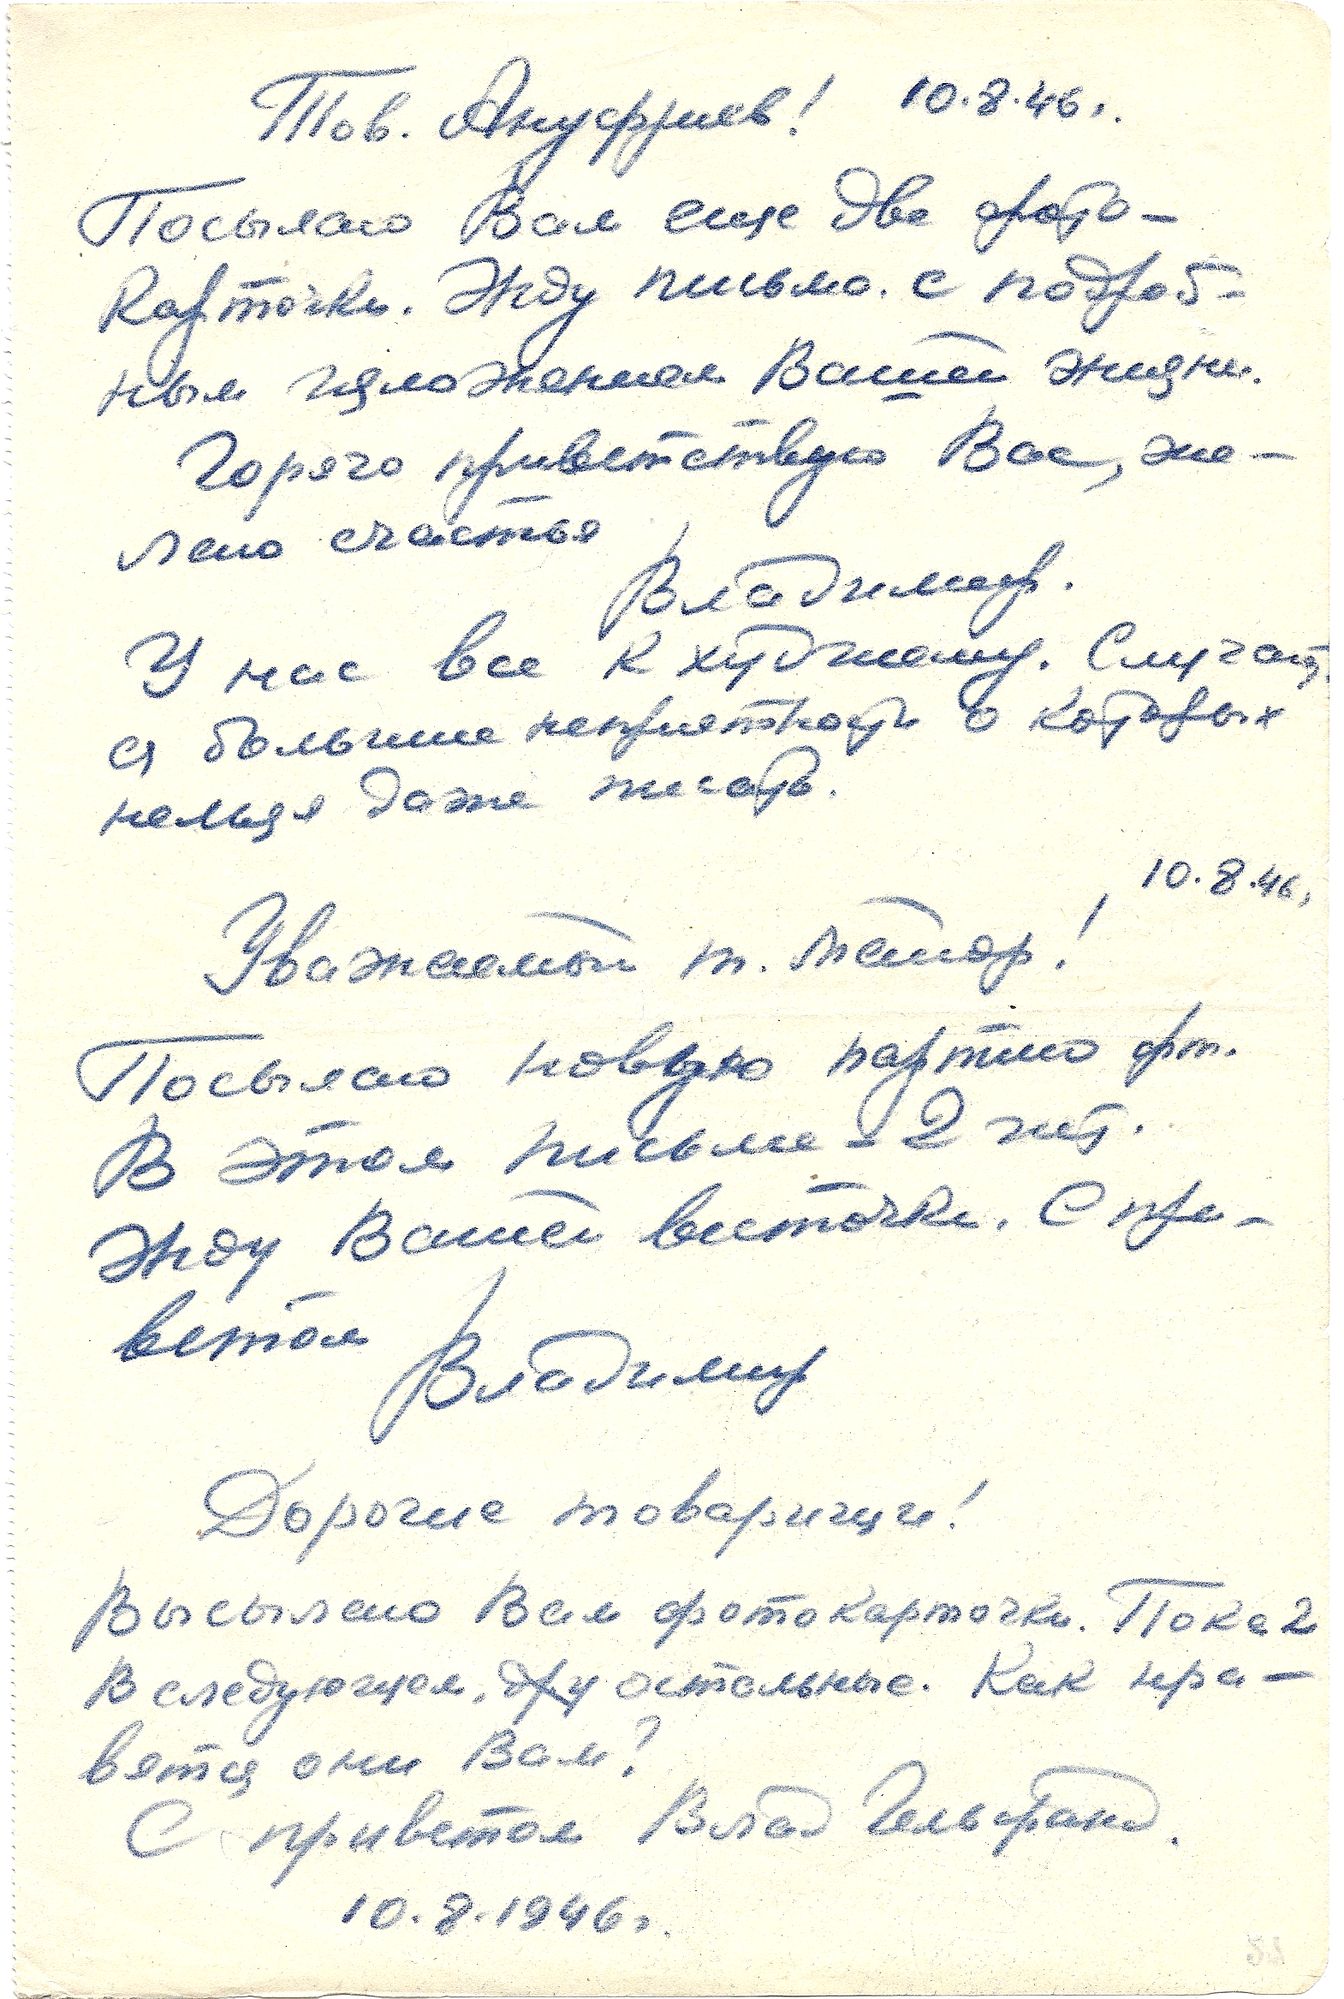 Тов. Ануфриев! 10.8.46г.
Посылаю Вам еще две фото-
карточки. Жду письма. с подроб-
ным изложением Вашей жизни.
Горячо приветствую Вас, же-
лаю счастья
Владимир.
У нас все к худшему. Случают
ся большие неприятности о которых
нельзя даже писать.
10.8.46г.
Уважаемый т. Майор!
Посылаю новую партию фт.
В этом письме - 2 шт.
Жду Вашей весточки. С при-
ветом
Владимир
Дорогие товарищи!
Высылаю Вам фотокарточки. Пока 2
В следующем. остальные. Как нра-
вятся они Вам?
С приветом Влад Гельфанд.
10.8.1946г.